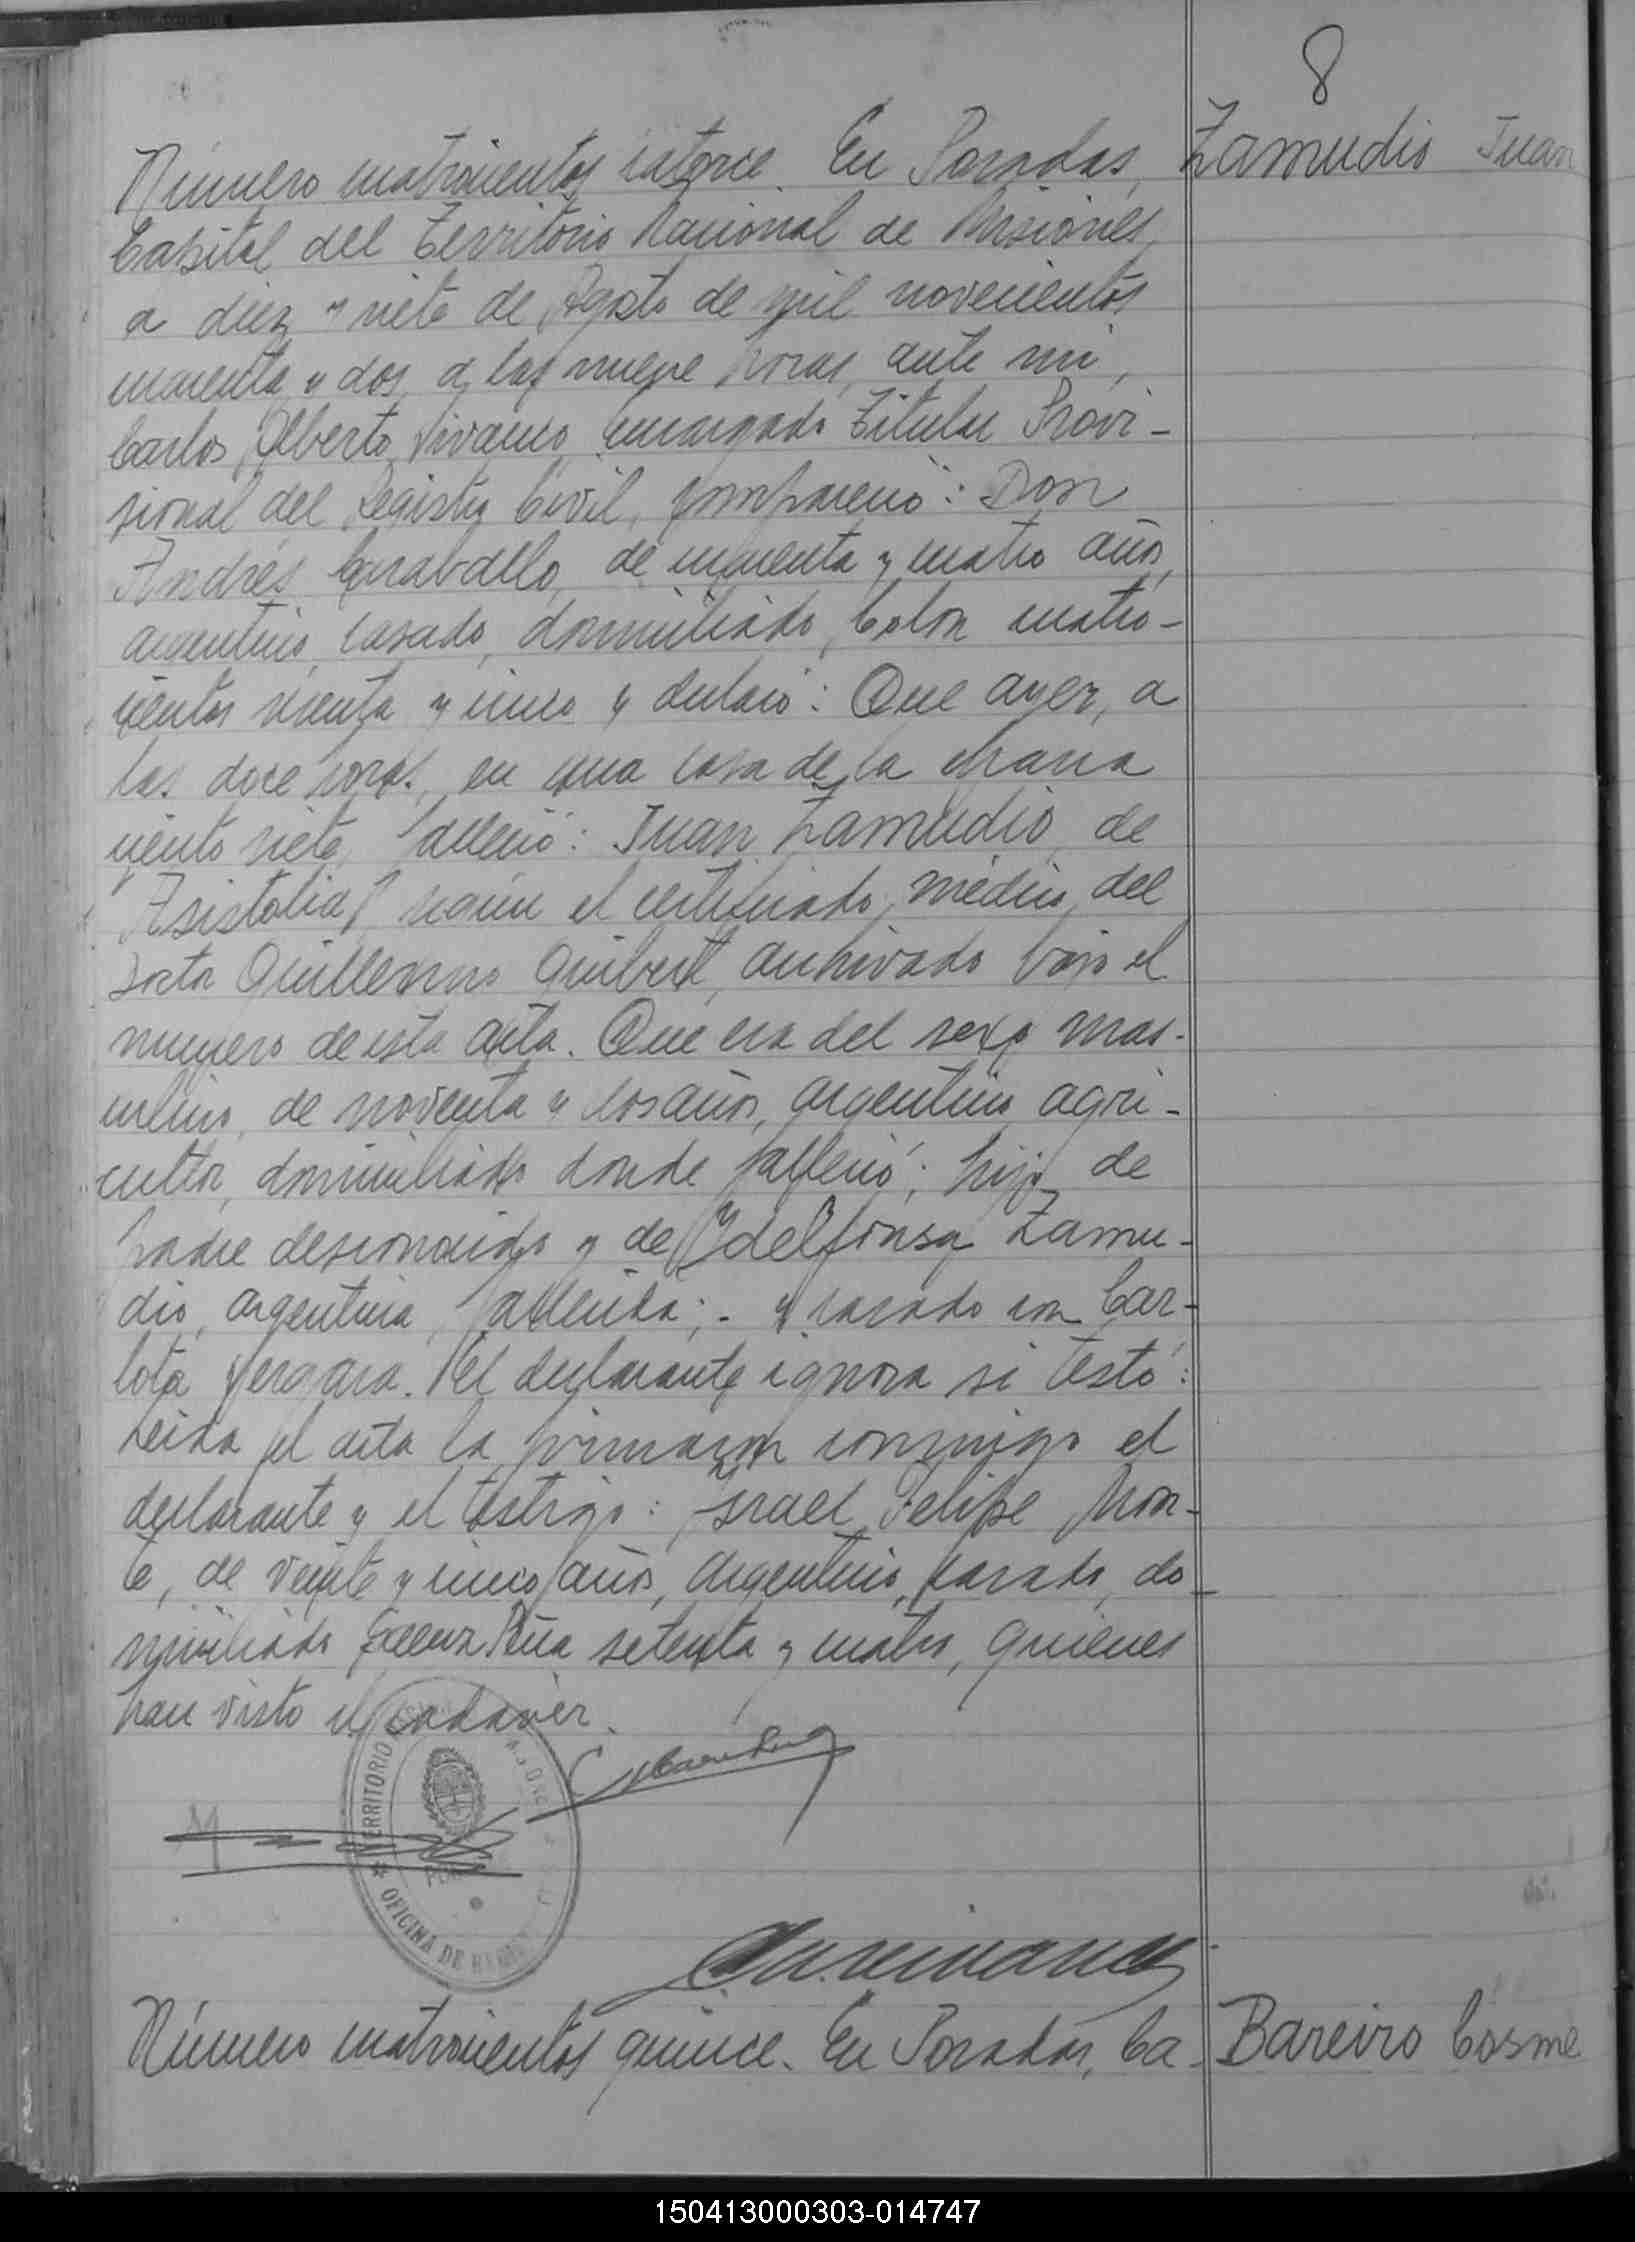 8
Número cuatrocientos catorce. En Posadas, Zamudio Juan
Capital del Territorio Nacional de Misiones,
a diez y siete de Agosto de mil novecientos
cuarenta y dos, a las nueve horas, ante mi,
Carlos Alberto Vivanco, encargado Titular Provi-
sional del Registro Civil, compareció: Don
Andrés Caraballo, de cincuenta y cuatro años,
argentino, casado, domiciliado, Colon cuatro-
cientos y cinco y declaró: Que ayer, a
las doce horas, en una casa de la chacra
ciento siete, falleció: Juan Zamudio, de
"Asistolia", según el certificado médico del
Doctor Guillermo Guibert, archivado bajo el
numero de esta acta. Que era del sexo mas-
culino, de noventa y dos años, argentino, agri-
cultor, domiciliado donde falleció; hijo de
padre desconocido y de Ydelfonsa Zamu-
dio, argentina, fallecida;- y casado con Car-
lota Vergara. El declarante ignora si testó:
Leida el acta la firmaron conmigo el
declarante y el testigo: Israel Felipe Mon-
te, de veinte y cinco años, argentino, casado, do-
miciliado Saenz Peña setenta y cuatro, quienes
han visto el cadáver.
TERRITORIO
OFICINA DE
Número cuatrocientos quince. En Posadas, Ca- Bareiro Cosme
150413000303-014747